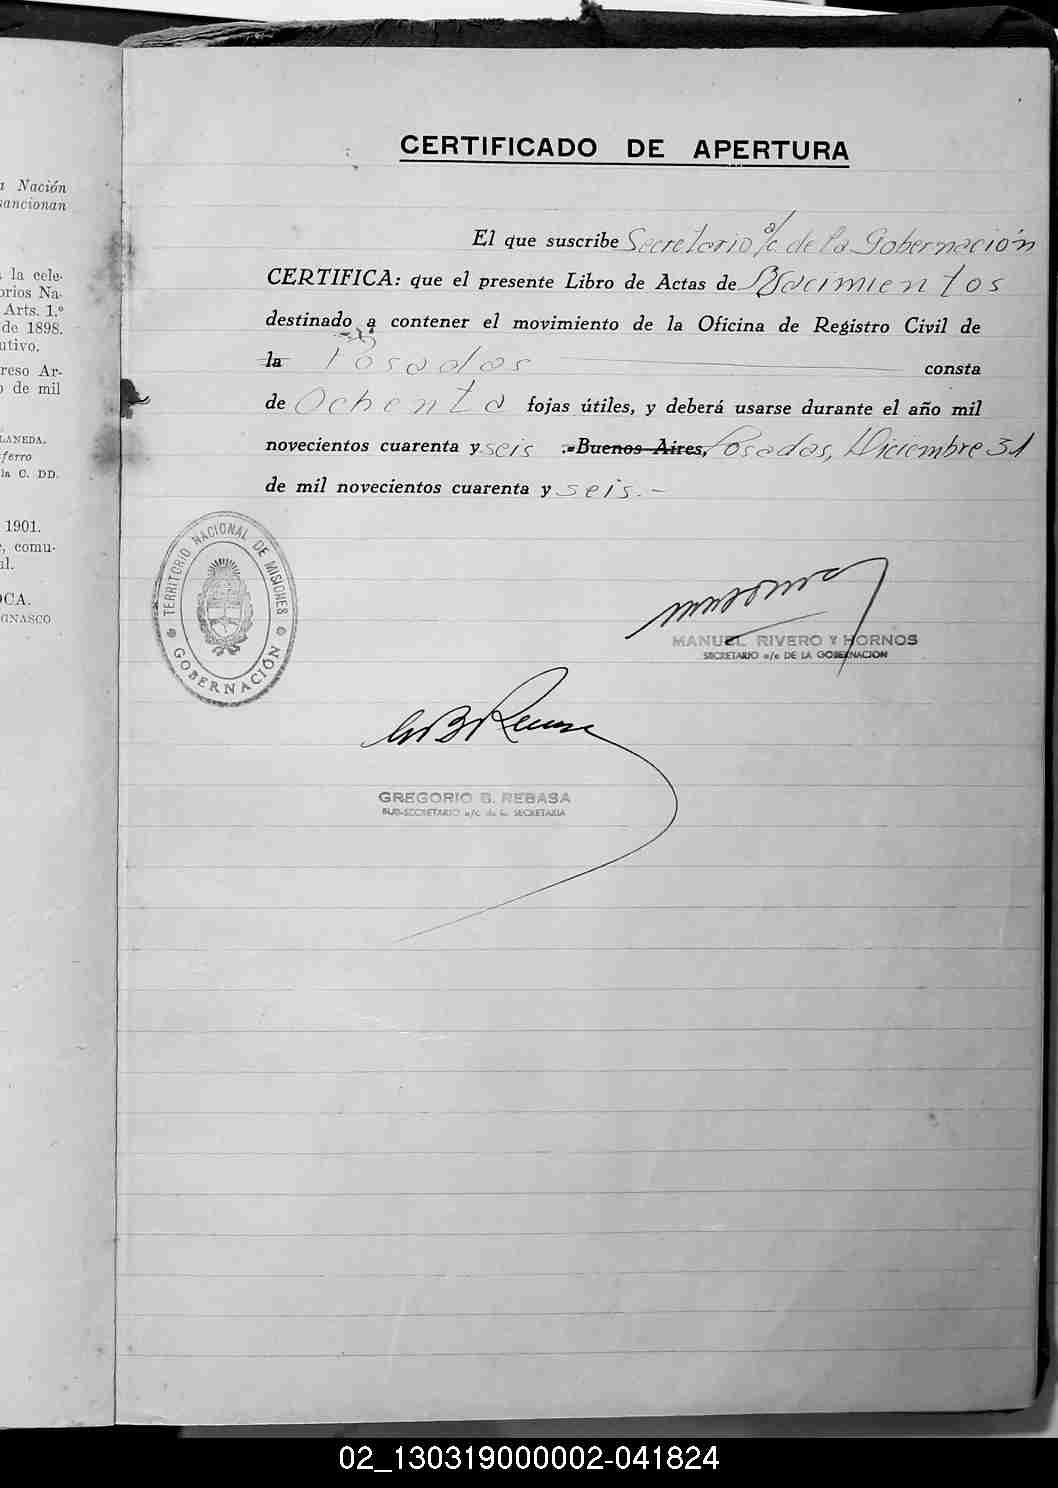 a Nación
sancionan
la cele-
orios Na-
Arts. 1.º
de 1898.
utivo.
reso Ar-
o de mil
LANEDA.
ferro
la C. DD.
1901.
, comu-
al.
OCA.
GNASCO
CERTIFICADO DE APERTURA
El que suscribe Secretario a/c de la Gobernación
CERTIFICA: que el presente Libro de Actas de Nacimientos
destinado a contener el movimiento de la Oficina de Registro Civil de
la Posadas consta
de Ochenta fojas útiles, y deberá usarse durante el año mil
novecientos cuarenta y seis .-Buenos Aires, Posadas, Diciembre 31
de mil novecientos cuarenta y seis.-
TERRITORIO NACIONAL DE MISIONES
GOBERNACIÓN
MANUEL RIVERO Y HORNOS
SECRETARIO a/c DE LA GOBERNACION
GREGORIO B. REBASA
SUB-SECRETARIO a/c de la SECRETARIA
02_130319000002-041824